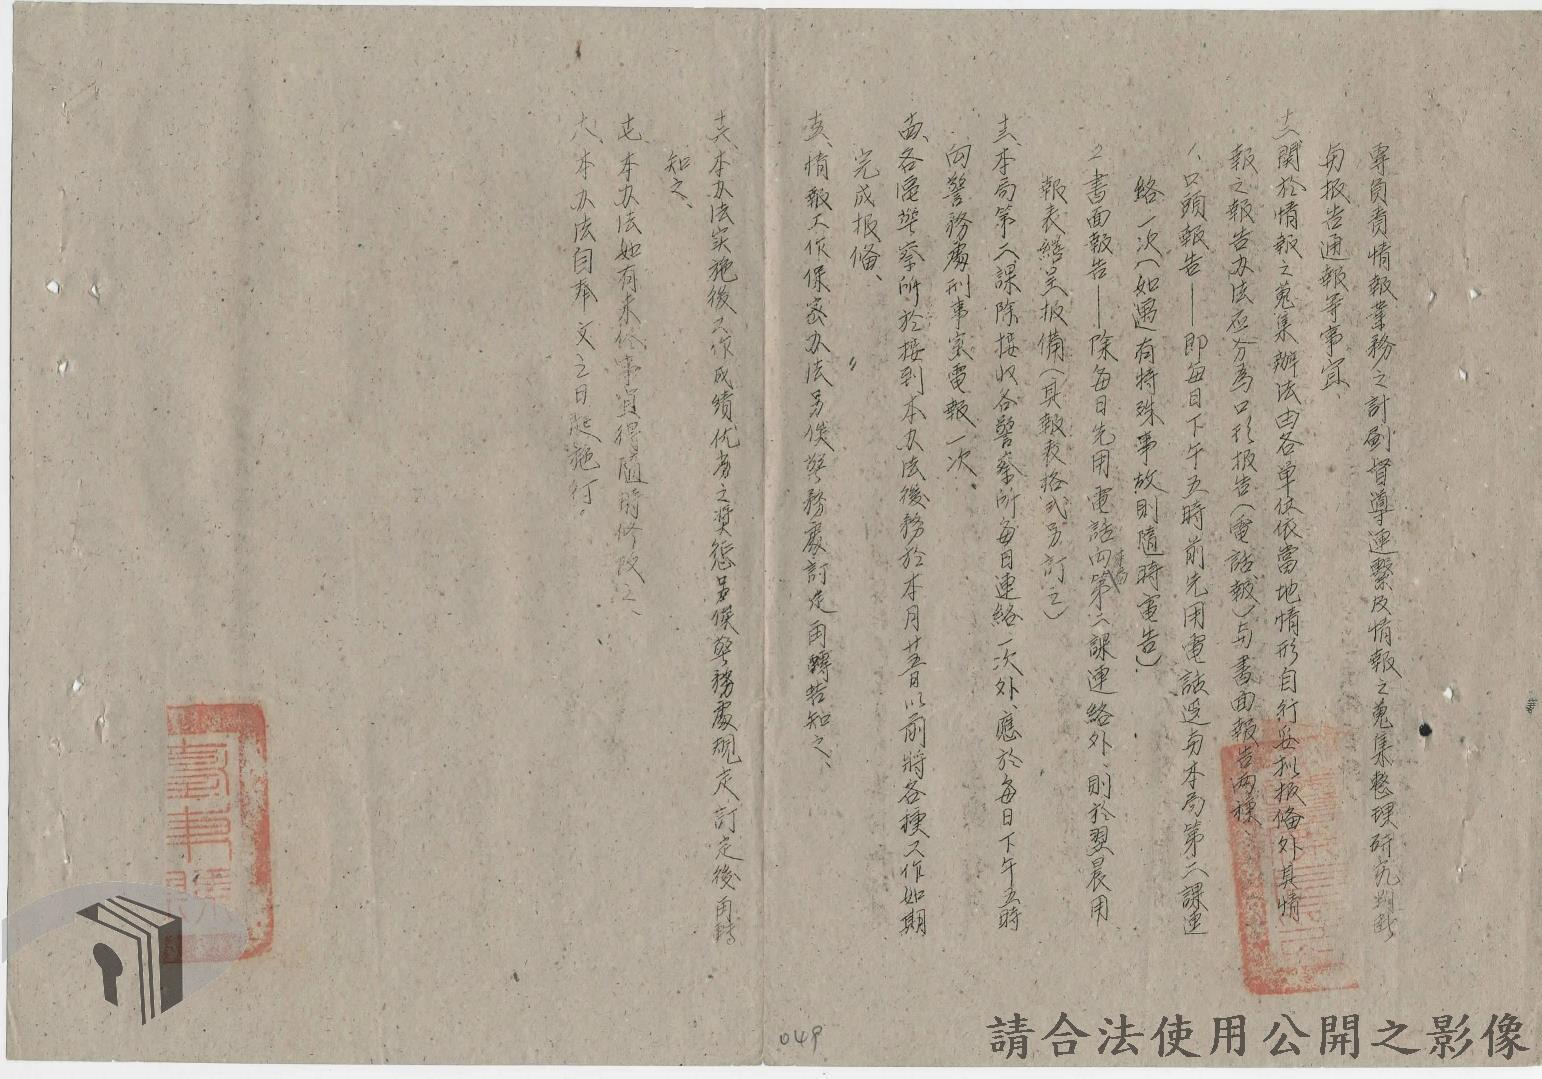 專員責情報業務之計劃督導連繫及情報之蒐集整理研究判斷
與报告通報等事宜、
關於情報之蒐集辦法由各單位依當地情形自行妥拟报俻外其情
報之報告办法应分為口头报告(電話報)与書面報告两種、
1、口頭報告——即每日下午五時前先用電話逕與本局第二課連
絡一次(如遇有特殊事故則隨時電告)
2、書面報告——除每日先用電話向本局第二課連絡外、則於翌晨用
報表繕呈报備(其報表格式另訂之)
圭、本局第二課除接收各警察所每日連絡一次外、應於每日下午五時
向警務處刑事室電報一次
、各區警察所於接到本办法後務於本月廿五日以前將各種工作如期
完成报俻、
、情報工作保密办法另俟警務處訂定再轉若知之、
、本办法实施後工作成績优劣之獎惩另俟警務處規定訂定後再轉
知之、
、本办法如有未尽事宜得隨時修改之、
、本办法自奉文之日起施行。
049
請合法使用公開之影像